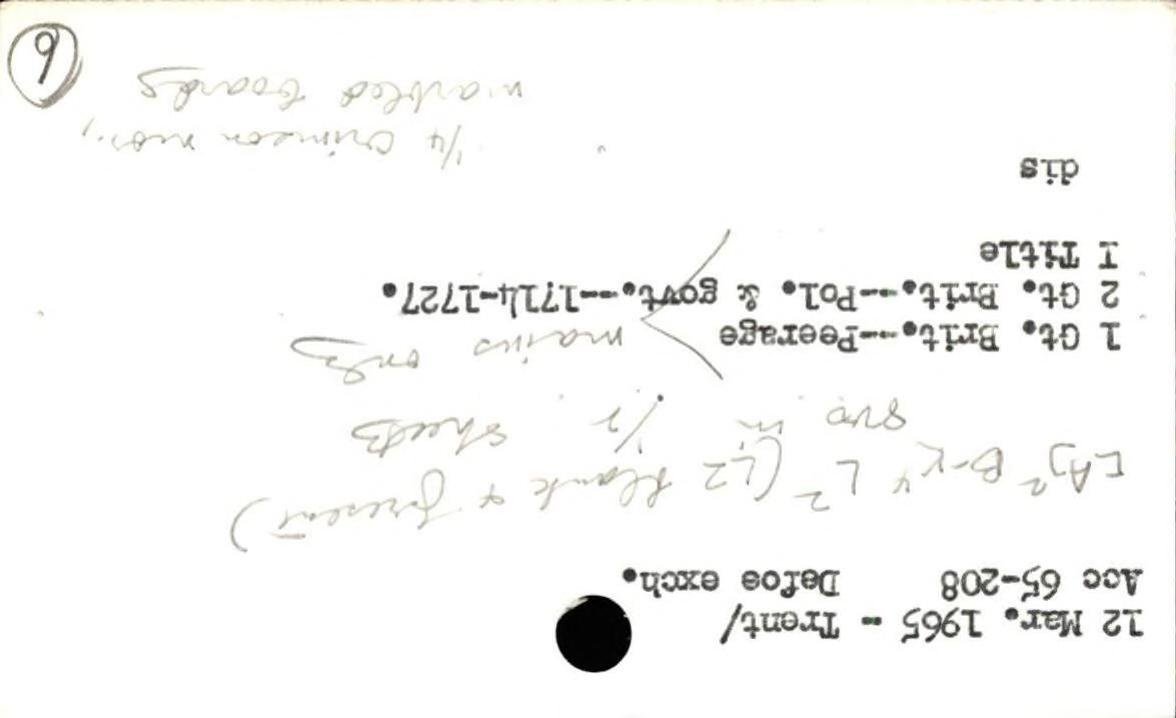 12 Mar. 1965 - Trent/
Acc 65-208 Defoe exch.
[A]² B-K⁴ L² (L2 blank & present)
8vo in ½ sheets
1 Gt. Brit.--Peerage
mains only
2 Gt. Brit.--Pol. & govt.--1714-1727.
I Title
dis
1/4 crimson mor.,
marbled boards
6